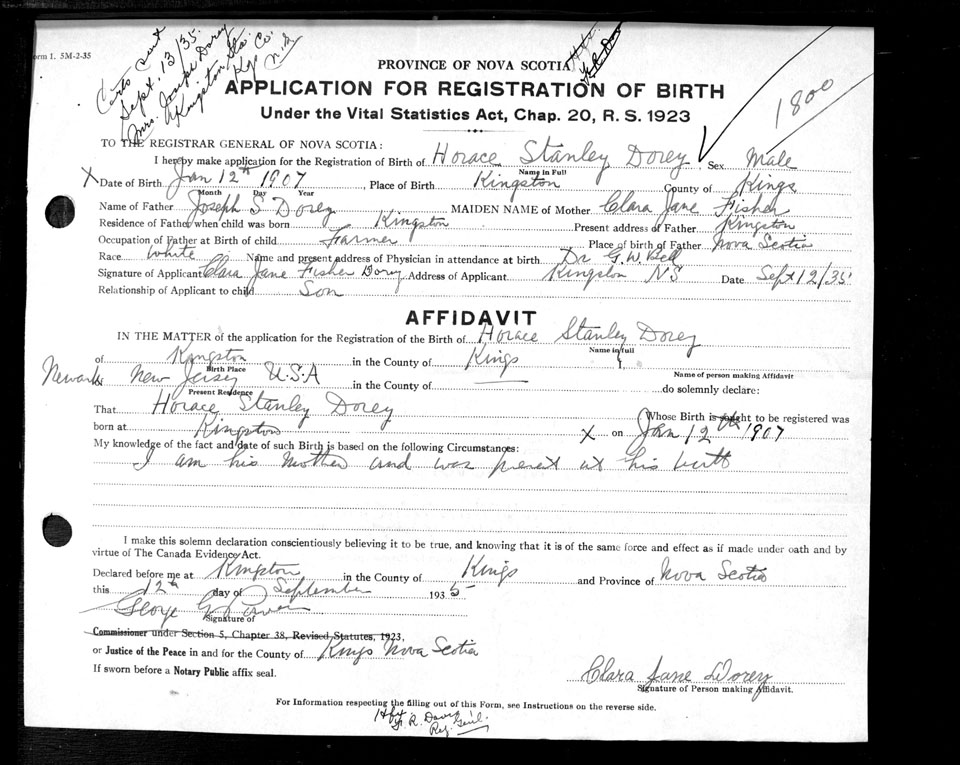 orm 1. 5M-2-35
Certs sent
Sept. 13/35.
Mrs. Joseph Dorey
Kingston Sta.
Kgs Co.
N.S
PROVINCE OF NOVA SCOTIA
APPLICATION FOR REGISTRATION OF BIRTH
Under the Vital Statistics Act, Chap. 20, R. S. 1923
1800
TO THE REGISTRAR GENERAL OF NOVA SCOTIA:
I hereby make application for the Registration of Birth of Horace Stanley Dorey Sex Male
Name in Full
X Date of Birth Jan 12th 1907, Place of Birth Kingston County of Kings
Month Day Year
Name of Father Joseph S Dorey MAIDEN NAME of Mother Clara Jane Fisher
Residence of Father when child was born Kingston Present address of Father Kingston
Occupation of Father at Birth of child Farmer Place of birth of Father Nova Scotia
Race White Name and present address of Physician in attendance at birth Dr G. W. Bell
Signature of Applicant Clara Jane Fisher Dory Address of Applicant Kingston N S Date Sept 12/35
Relationship of Applicant to child Son
AFFIDAVIT
IN THE MATTER of the application for the Registration of the Birth of Horace Stanley Dorey
Name in full
of Kingston in the County of Kings
Birth Place Name of person making Affidavit
Newark New Jersey U.S.A in the County of do solemnly declare:
Present Residence
That Horace Stanley Dorey Whose Birth is ought to be registered was
born at Kingston X on Jan 12th 1907
My knowledge of the fact and date of such Birth is based on the following Circumstances:
I am his Mother and was present at his birth
I make this solemn declaration conscientiously believing it to be true, and knowing that it is of the same force and effect as if made under oath and by
virtue of The Canada Evidence Act.
Declared before me at Kingston in the County of Kings and Province of Nova Scotia
this 12th day of September 1935
George
Signature of
Commissioner under Section 5, Chapter 38, Revised Statutes, 1923,
or Justice of the Peace in and for the County of Kings Nova Scotia
If sworn before a Notary Public affix seal.
Clara Jane Dorey
Signature of Person making Affidavit.
For Information respecting the filling out of this Form, see Instructions on the reverse side.
R. Davis
Reg. Genl.